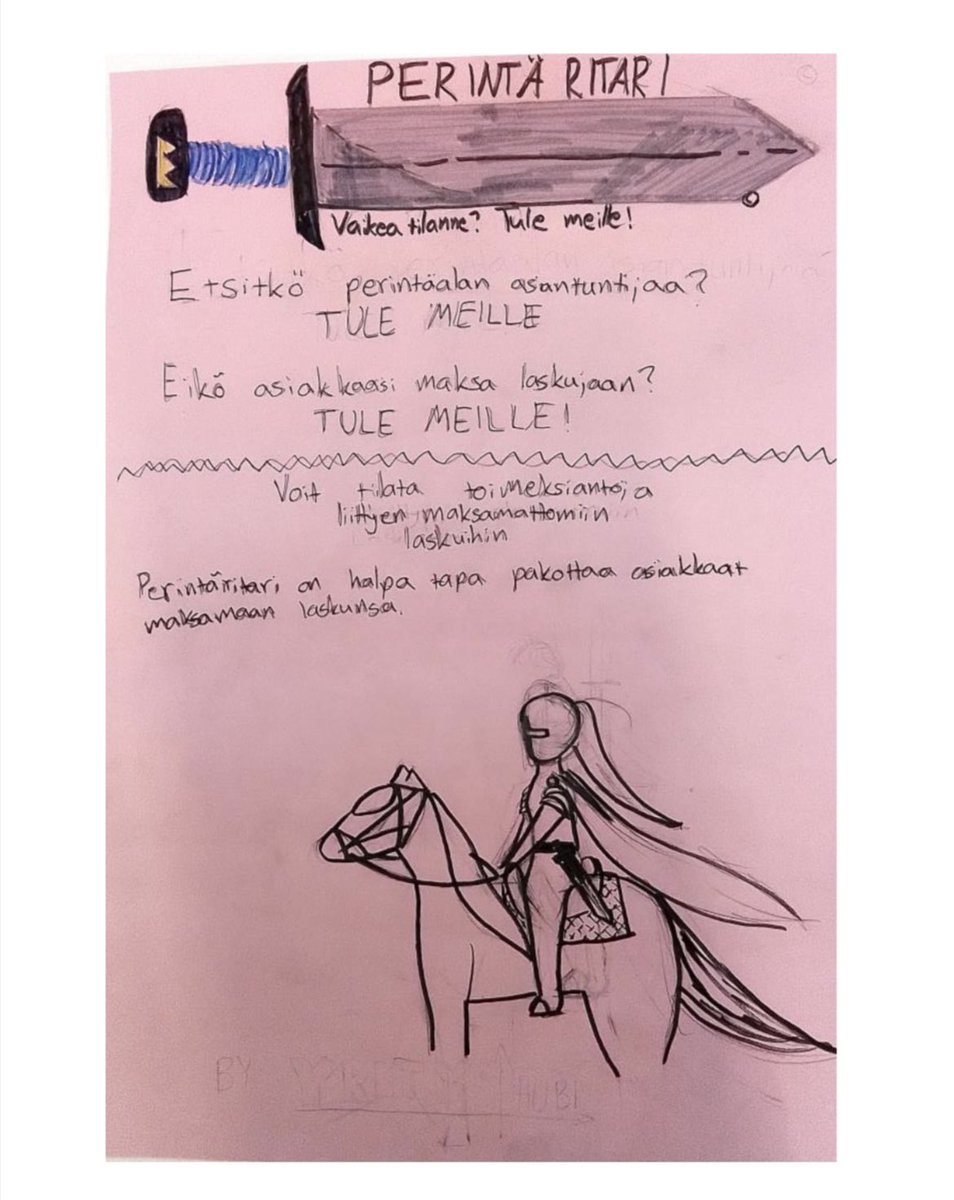 PERINTÄ RITARI
©
Vaikea tilanne? Tule meille!
Etsitkö perintäalan asiantuntijaa?
TULE MEILLE
Eikö asiakkaasi maksa laskujaan?
TULE MEILLE!
Voit tilata toimeksiantoja
liittyen maksamattomiin
laskuihin
Perintäritari on halpa tapa pakottaa asiakkaat
maksamaan laskunsa.
BY